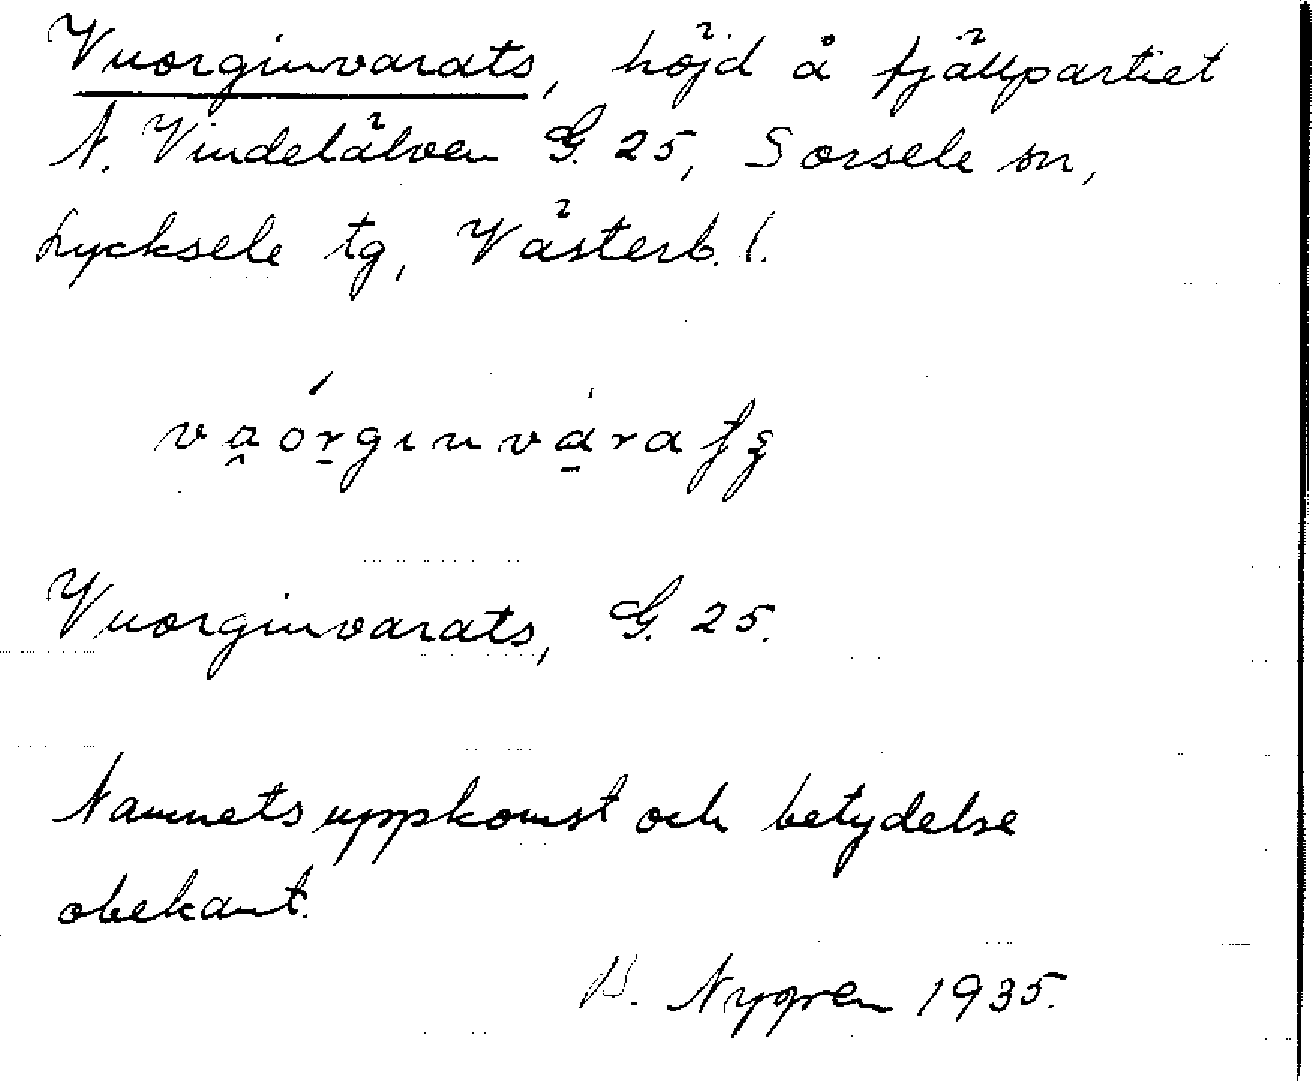 Vuorginvarats, höjd å fjällpartiet
N. Vindelälven G. 25, Sorsele sn,
Lycksele tg, Västerb. l.
Vuorginvarats, G. 25.
Namnets uppkomst och betydelse
obekant.
B. Nygren 1935.